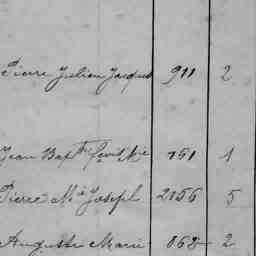 Pierre Julien Jacques 911 2
Jean Bapte Louis Mie 751 1
Pierre Mie Joseph 2156 5
Auguste Marie 868 2